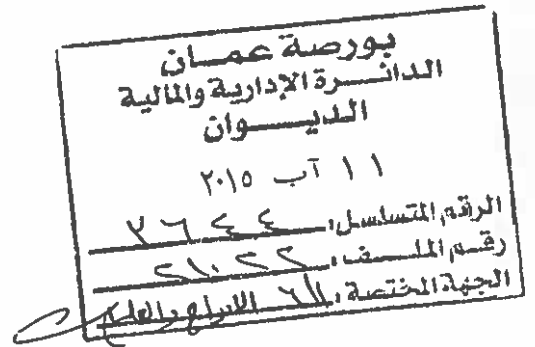 بورصة عمان
الدائرة الإدارية والمالية
الديوان
١١ آب ٢٠١٥
الرقم المتسلسل: ٣٦٤٤
رقم الملف: ٢١٠٢٢
الجهة المختصة: الادراج والعمليات